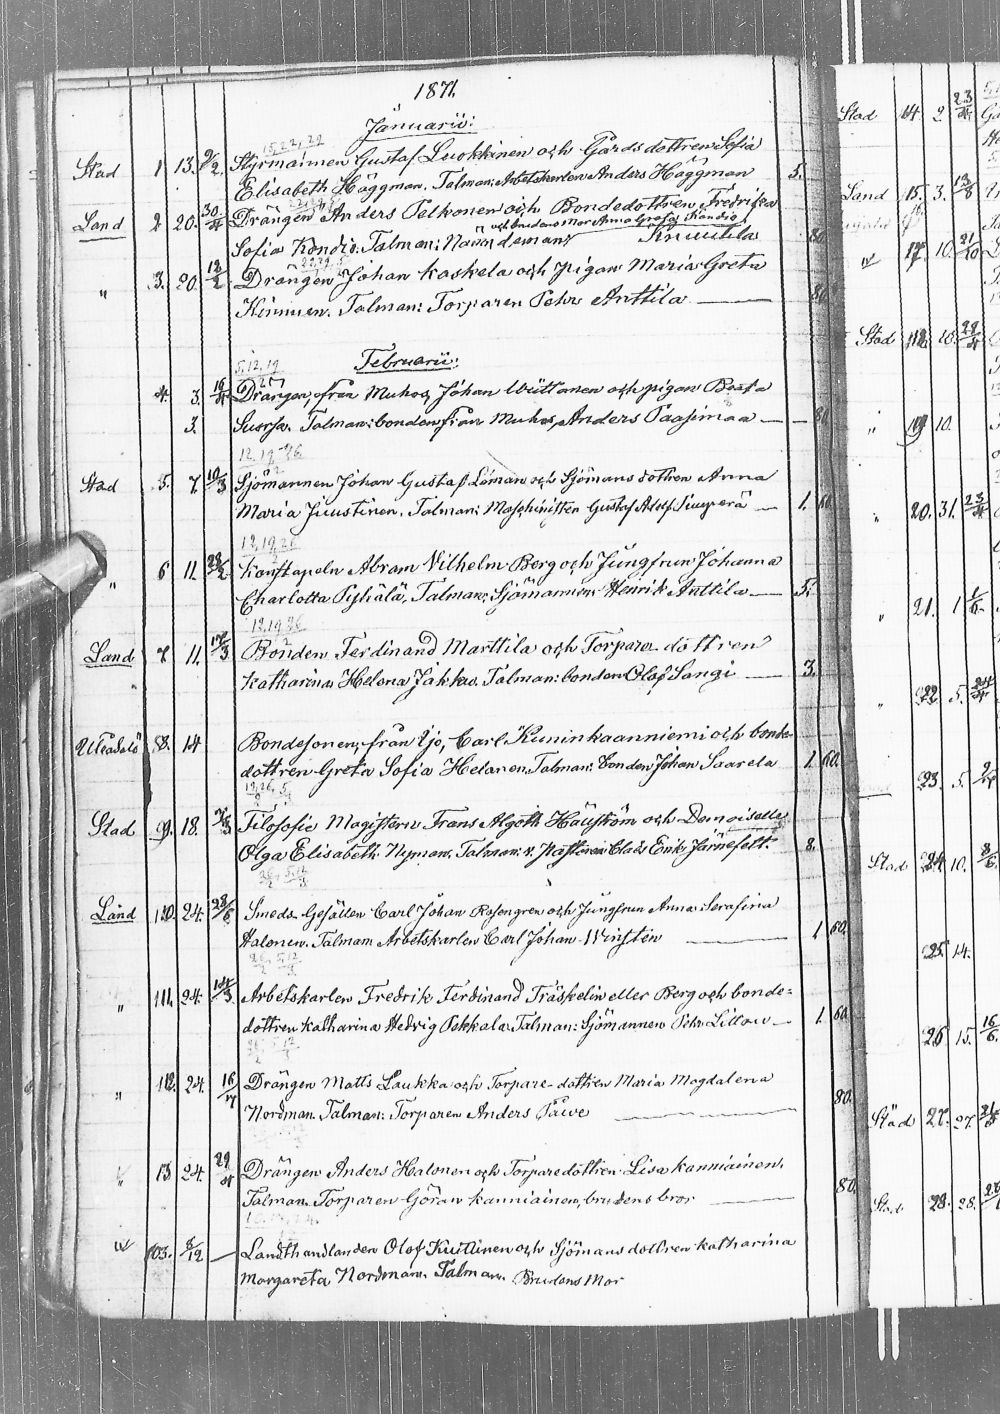 1871.
Januarii:
15, 22, 29
Stad 1 13. 9/2. Styrmannen Gustaf Luokkinen och Gårdsdottren Sofia
Elisabeth Häggman. Talman: Arbetskarlen Anders Häggman 5.
Land 2 20. 30/4 Drängen Anders Pelkonen och Bondedottren Fredrika
och brudens mor Anna Greta Kondio
Sofia Kondio. Talman: Nämndeman Knuutila 80.
" 3. 20. 12/2 Drängen Johan Kaskela och pigan Maria Greta
Kinnunen. Talman: Torparen Pehr Anttila — 80.
Februarii:
5, 12, 19
4. 3. 16/4 Drängen, från Muhos, Johan Wüttanen och pigan Beata
3. Suorsa. Talman: bonden från Muhos, Anders Paasimaa — 80.
12, 19, 26
Stad 5. 7. 10/3 Sjömannen Johan Gustaf Löman och Sjömansdottren Anna
Maria Juustinen. Talman: Maschinisten Gustaf Adolf Simperä — 1. 60.
12, 19, 26
" 6 11. 28/2 Konstapeln Abram Vilhelm Berg och Jungfrun Johanna
Charlotta Pyhälä. Talman: Sjömannen Henrik Anttila — 5.
12, 19, 26
Land 7 11. 17/3 Bonden Ferdinand Marttila och Torpare dottren
Katharina Helena Jakko. Talman: bonden Olof Sangi — 3.
Uleåsalo 8. 14 Bondesonen, från Ijo, Carl Kuninkaanniemi och bonde-
dottren Greta Sofia Helanen. Talman: bonden Johan Saarela 1. 60.
19, 26, 5
Stad 9. 18. Filosofie Magistern Frans Algoth Häuström och Demoiselle
Olga Elisabeth Nyman. Talman: v. Pastorn Claës Erik Järnefelt. 8.
26, 5, 12
Land 10. 24. 28/6 Smeds-Gesällen Carl Johan Rosengren och Jungfrun Anna Serafina
Halonen. Talman Arbetskarlen Carl Johan Winstén — 1 60.
26, 5, 12
" 11. 24. 14/3 Arbetskarlen Fredrik Ferdinand Träskelin eller Berg och bonde-
dottren Katharina Hedvig Pekkala. Talman: Sjömannen Pehr Lillow — 1. 60.
" 12. 24. 16/4 Drängen Matts Laukka och Torpare-dottren Maria Magdalena
Nordman. Talman: Torparen Anders Päwe — 80.
" 13 24. 29/4 Drängen Anders Halonen och Torparedottren Lisa Kanniainen.
Talman. Torparen Göran Kanniainen, brudens bror — 80.
103. 8/12 — Landthandlanden Olof Kuittinen och Sjömansdottren Katharina
Margareta Nordman. Talman. Brudens Mor
Stad 14. 2 23/4
Land 15. 3. 13/8
17. 10. 21/10
Stad 18. 10. 29/4
" 19 10.
" 20. 31. 23/4
" 21. 1
" 22. 5. 24/4
23. 5.
Stad 24. 10. 8/6
25. 14.
26. 15. 16/6.
Stad 27. 27.
Stad 28. 28.